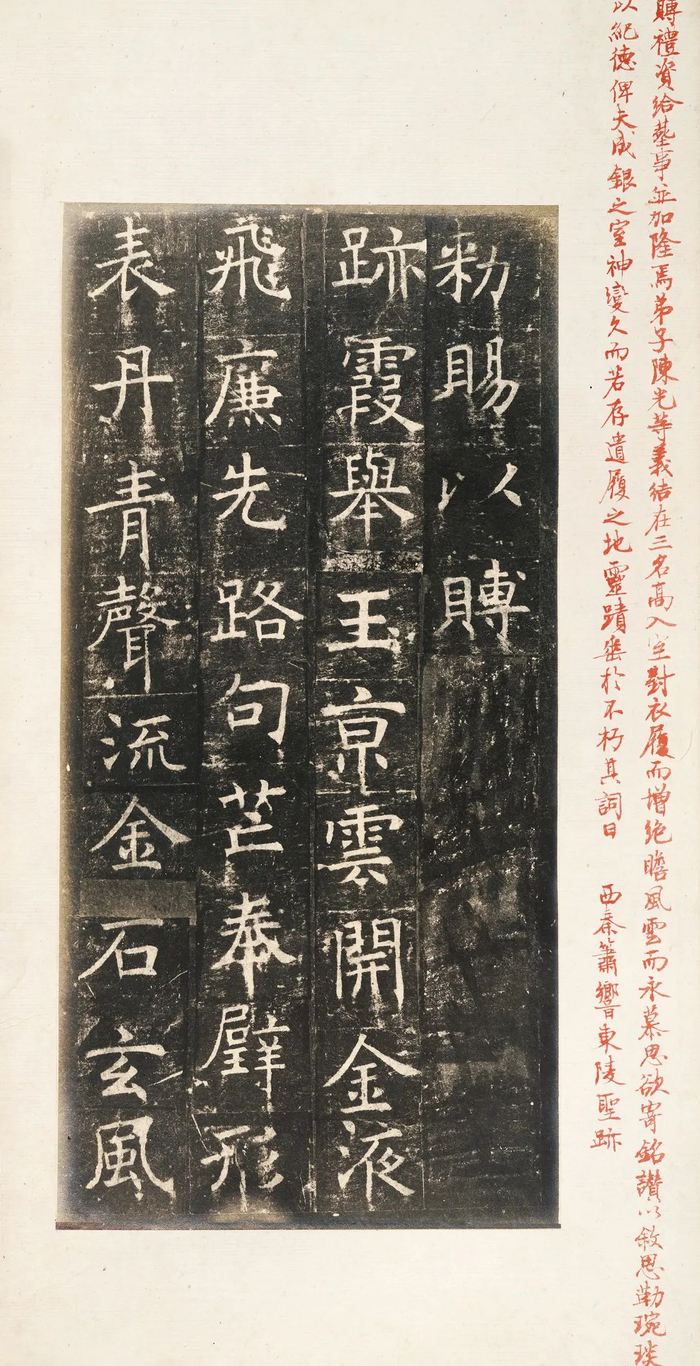 賻禮資給塟事並加隆焉弟子陳光等義結在三名高入室對衣履而增絶瞻風雲而永慕思欲寄銘讚以敘思勒琬琰
以紀德俾夫成銀之室神變久而若存遺履之地靈蹟垂於不朽其詞曰 西秦簫響東陵聖跡
勑賜以賻
跡霞舉玉亰雲開金液
飛廉先路句芒奉辟形
表丹青聲流金石玄風